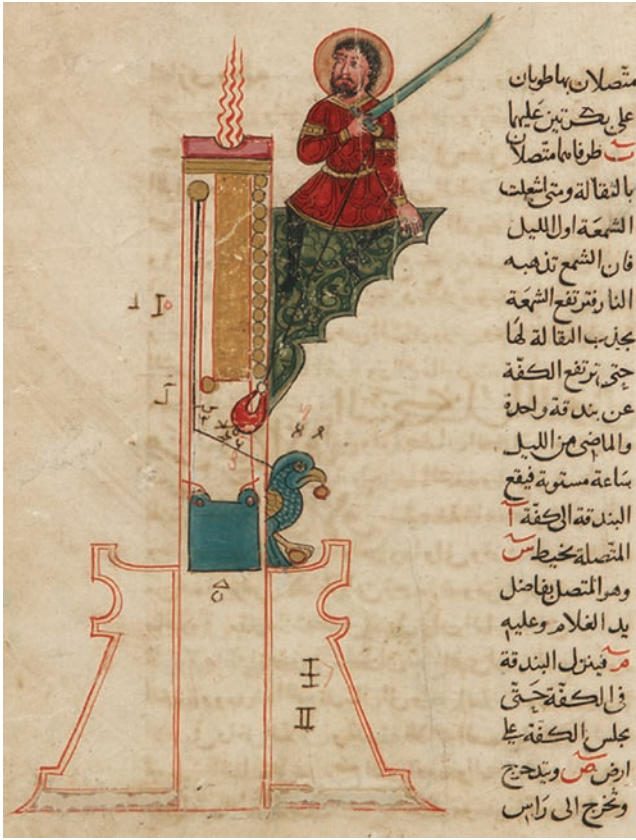 متصلان بها طويان
على بكرتين عليهما
ت طرفاهما متصلان
بالثقالة ومتى اشعلت
الشمعة اول الليل
فان الشمع تذهبه
النار فترتفع الشمعة
بجذب الثقالة لها
حتى ترتفع الكفة
عن بندقة واحدة
والماضى من الليل
ساعة مستوية فيقع
البندقة الى كفة آ
المتصلة بخيط س
وهو المتصل بفاضل
يد الغلام وعليه
فينزل البندقة
فى الكفة حتى
يجلس الكفة على
ارض ص ويتدحرج
وتخرج الى راس